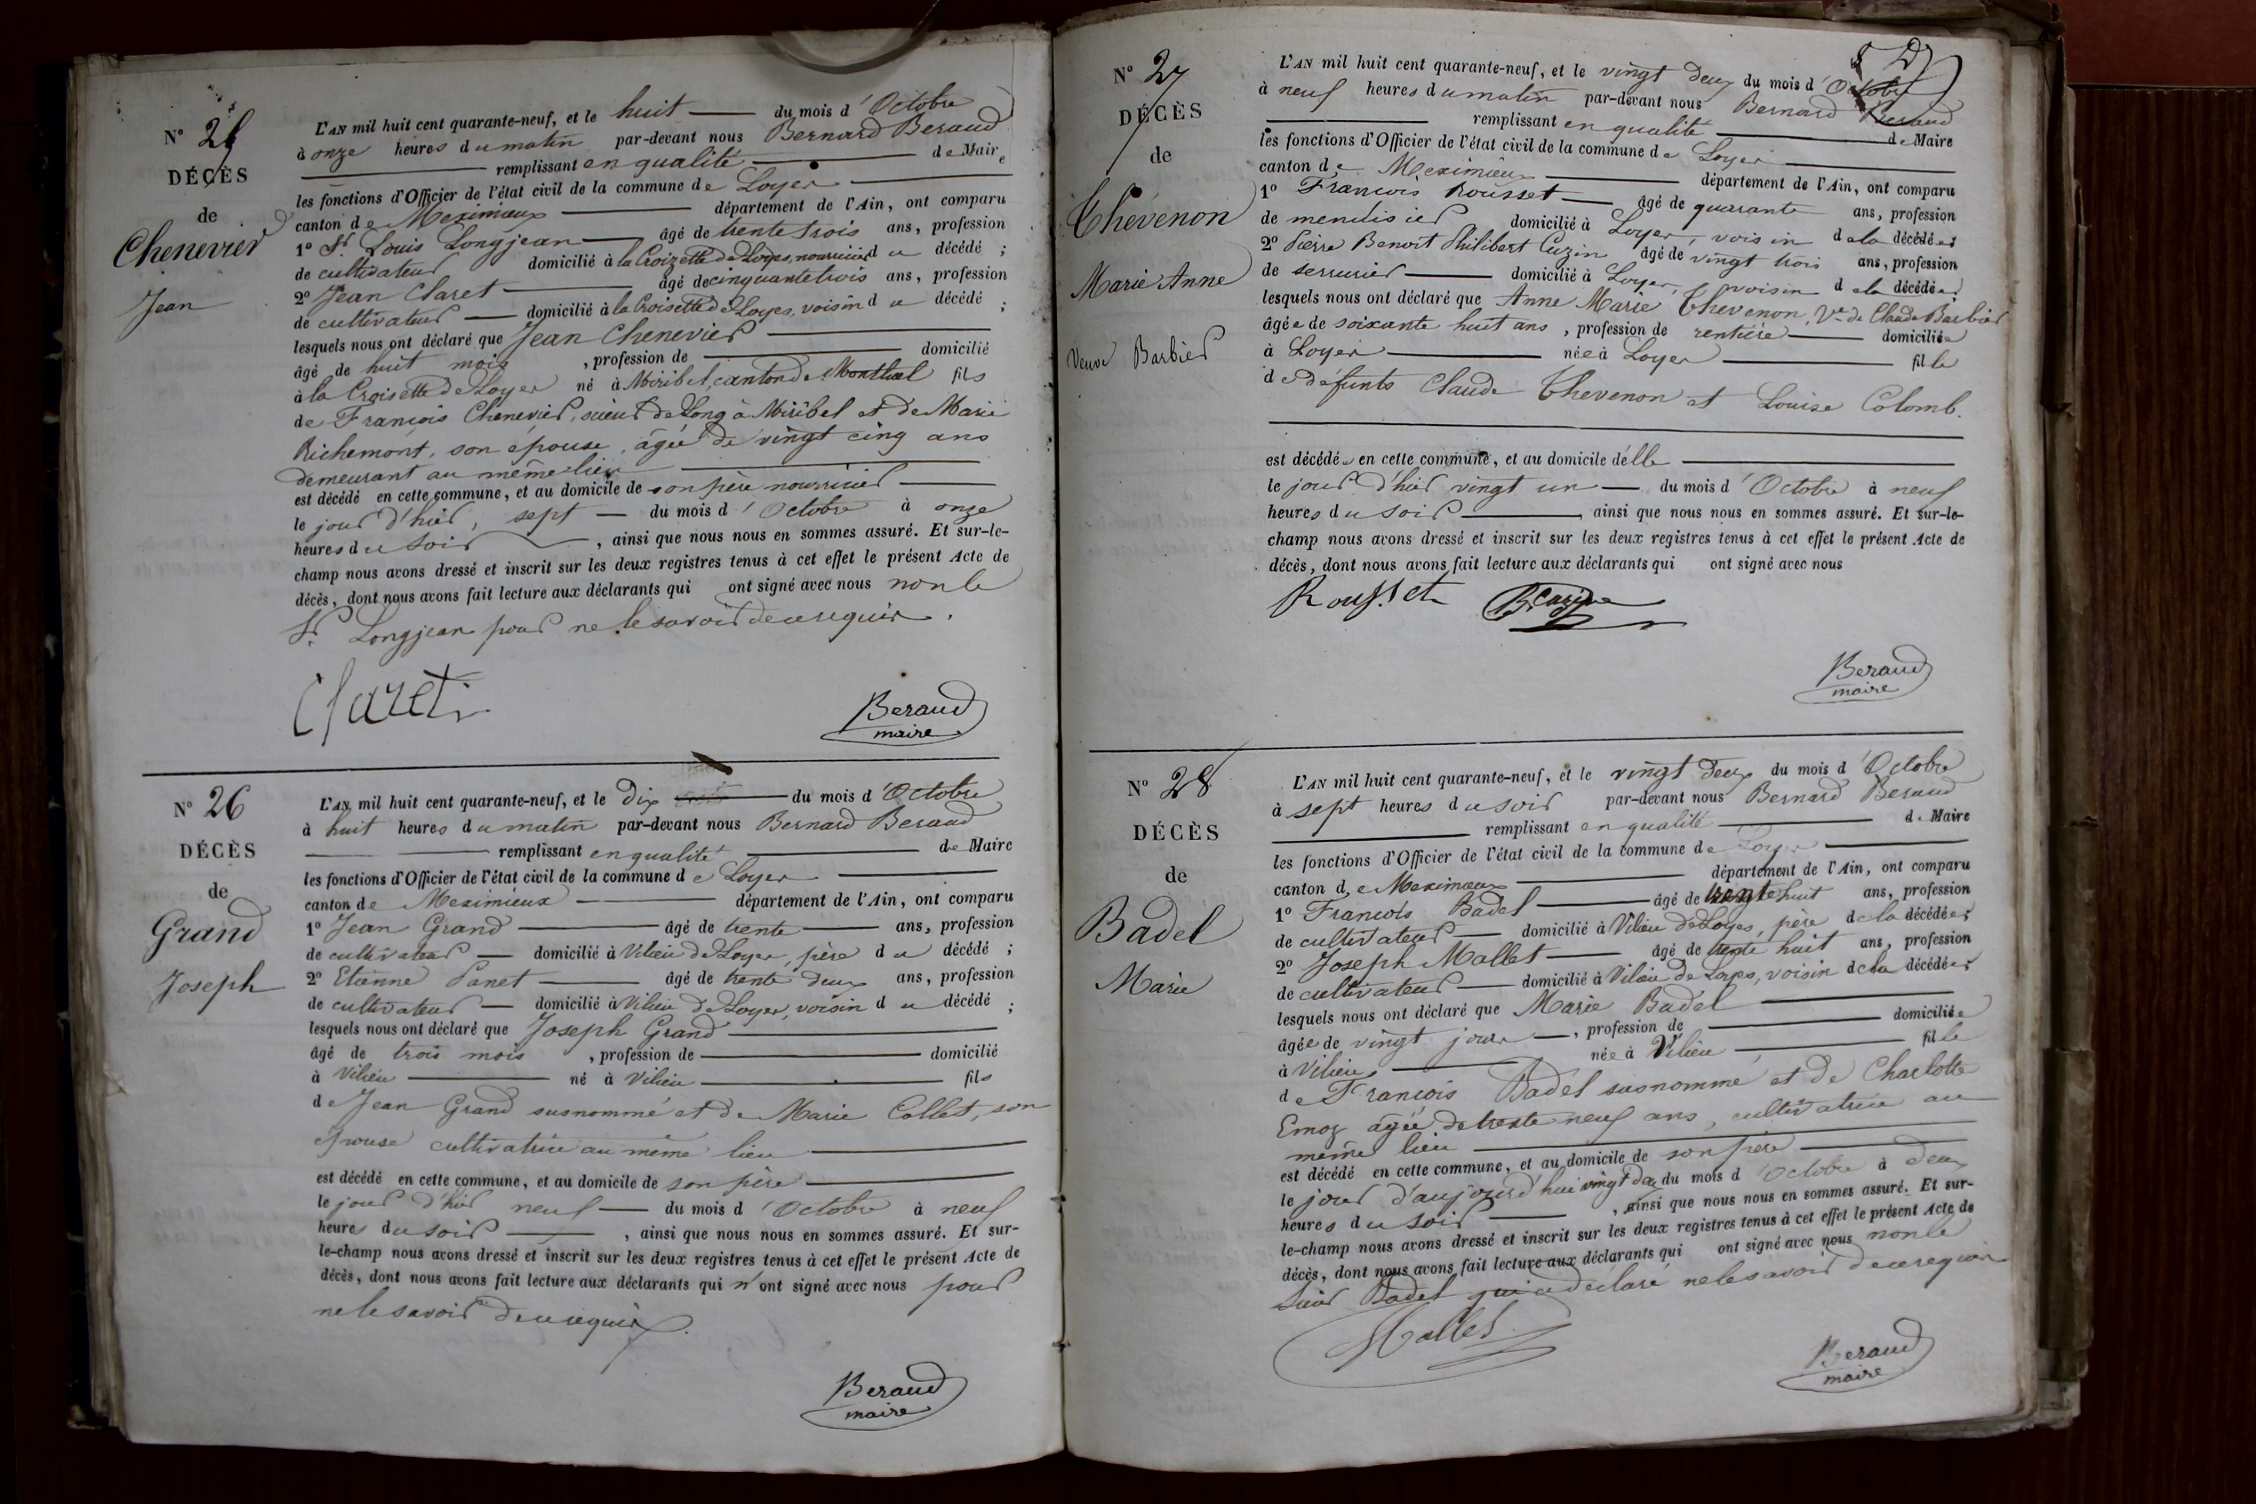 N° 25
DÉCÈS
de
Chenevier
Jean
L'AN mil huit cent quarante-neuf, et le huit du mois d'Octobre
à onze heures du matin par-devant nous Bernard Beraud
remplissant en qualité de Maire
les fonctions d'Officier de l'état civil de la commune de Loyes
canton de Meximieux département de l'Ain, ont comparu
1° Sr. Louis Longjean âgé de trente trois ans, profession
de cultivateur domicilié à la Croizette de Loyes, nourricier du décédé ;
2° Jean Claret âgé de cinquante trois ans, profession
de cultivateur domicilié à la Croisette de Loyes, voisin du décédé ;
lesquels nous ont déclaré que Jean Chenevier
âgé de huit mois, profession de domicilié
à la Croisette de Loyes né à Miribel, canton de Montluel fils
de François Chenevier, scieur de long à Miribel et de Marie
Richemont, son épouse, âgée de vingt cinq ans
demeurant au même lieu
est décédé en cette commune, et au domicile de son père nourricier
le jour d'hier, sept du mois d'Octobre à onze
heures du soir, ainsi que nous nous en sommes assuré. Et sur-le-
champ nous avons dressé et inscrit sur les deux registres tenus à cet effet le présent Acte de
décès, dont nous avons fait lecture aux déclarants qui ont signé avec nous non le
Sr. Longjean pour ne le savoir de ce requis.
Claret
Beraud
maire
N° 26
DÉCÈS
de
Grand
Joseph
L'AN mil huit cent quarante-neuf, et le dix du mois d'Octobre
à huit heures du matin par-devant nous Bernard Beraud
remplissant en qualité de Maire
les fonctions d'Officier de l'état civil de la commune de Loyes
canton de Meximieux département de l'Ain, ont comparu
1° Jean Grand âgé de trente ans, profession
de cultivateur domicilié à Vilieu de Loyes, père du décédé ;
2° Etienne Panet âgé de trente deux ans, profession
de cultivateur domicilié à Vilieu de Loyes, voisin du décédé ;
lesquels nous ont déclaré que Joseph Grand
âgé de trois mois, profession de domicilié
à Vilieu né à Vilieu fils
de Jean Grand susnommé et de Marie Collet, son
épouse cultivatrice au même lieu
est décédé en cette commune, et au domicile de son père
le jour d'hier neuf du mois d'Octobre à neuf
heures du soir, ainsi que nous nous en sommes assuré. Et sur-
le-champ nous avons dressé et inscrit sur les deux registres tenus à cet effet le présent Acte de
décès, dont nous avons fait lecture aux déclarants qui n'ont signé avec nous pour
ne le savoir de ce requis.
Beraud
maire
N° 27
DÉCÈS
de
Thévenon
Marie Anne
Veuve Barbier
L'AN mil huit cent quarante-neuf, et le vingt deux du mois d'Octobre
à neuf heures du matin par-devant nous Bernard Beraud
remplissant en qualité de Maire
les fonctions d'Officier de l'état civil de la commune de Loyes
canton de Meximieux département de l'Ain, ont comparu
1° François Rousset âgé de quarante ans, profession
de menuisier domicilié à Loyes, voisin de la décédée ;
2° Pierre Benoit Philibert Cuzin âgé de vingt trois ans, profession
de serrurier domicilié à Loyes, voisin de la décédée ;
lesquels nous ont déclaré que Anne Marie Thevenon, Ve. de Claude Barbier
âgée de soixante huit ans, profession de rentière domiciliée
à Loyes née à Loyes fille
de défunts Claude Thevenon et Louise Colomb.
est décédée en cette commune, et au domicile d'elle
le jour d'hier vingt un du mois d'Octobre à neuf
heures du soir, ainsi que nous nous en sommes assuré. Et sur-le-
champ nous avons dressé et inscrit sur les deux registres tenus à cet effet le présent Acte de
décès, dont nous avons fait lecture aux déclarants qui ont signé avec nous
Rousset
Beraud
maire
N° 28
DÉCÈS
de
Badel
Marie
L'AN mil huit cent quarante-neuf, et le vingt deux du mois d'Octobre
à sept heures du soir par-devant nous Bernard Beraud
remplissant en qualité de Maire
les fonctions d'Officier de l'état civil de la commune de Loyes
canton de Meximieux département de l'Ain, ont comparu
1° François Badel âgé de trente huit ans, profession
de cultivateur domicilié à Vilieu de Loyes, père de la décédée ;
2° Joseph Mallet âgé de trente huit ans, profession
de cultivateur domicilié à Vilieu de Loyes, voisin de la décédée ;
lesquels nous ont déclaré que Marie Badel
âgée de vingt jours, profession de domiciliée
à Vilieu née à Vilieu fille
de François Badel susnommé et de Charlotte
Emoz âgée de trente neuf ans, cultivatrice au
même lieu
est décédé en cette commune, et au domicile de son père
le jour d'aujourd'hui vingt deux du mois d'Octobre à deux
heures du soir, ainsi que nous nous en sommes assuré. Et sur-
le-champ nous avons dressé et inscrit sur les deux registres tenus à cet effet le présent Acte de
décès, dont nous avons fait lecture aux déclarants qui ont signé avec nous non le
sieur Badel qui a déclaré ne le savoir de ce requis
Mallet
Beraud
maire